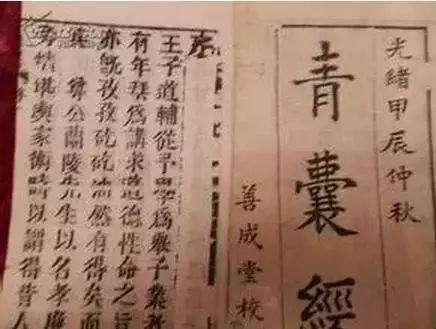 光緒甲辰仲秋
青囊經
善成堂校
王子道輔從予學爲舉子業
有年矣爲講求道德性命之言
亦旣孜孜矻矻沛然有得矣而
尊公蘭陵先生以名孝廉
堪輿家術時以謂得昔人